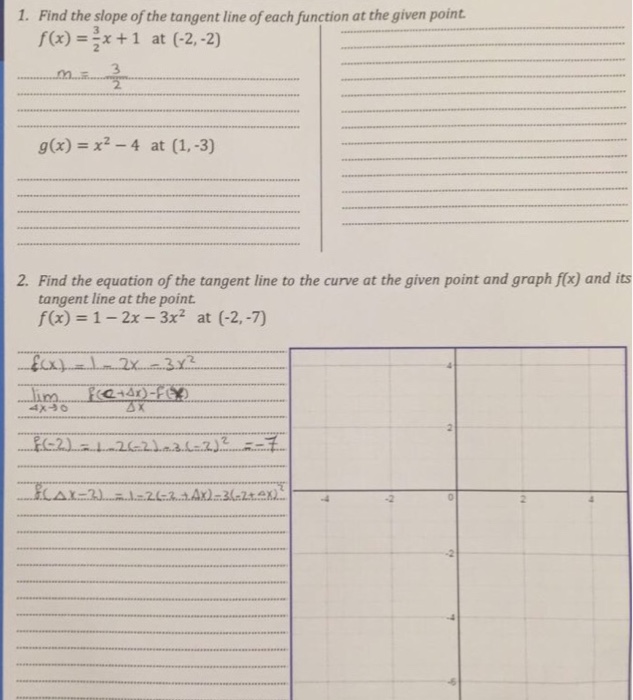 1. Find the slope of the tangent line of each function at the given point.
f(x) = 3/2 x + 1 at (-2, -2)
m = 3/2
g(x) = x² − 4 at (1, -3)
2. Find the equation of the tangent line to the curve at the given point and graph f(x) and its
tangent line at the point.
f(x) = 1 − 2x − 3x² at (-2, -7)
f(x) = 1 - 2x - 3x²
lim f(c+Δx)-f(x)
Δx→0 Δx
f(-2) = 1-2(-2)-3(-2)² = -7
f(Δx-2) = 1-2(-2+Δx)-3(-2+Δx)²
4
2
-4 -2 0 2 4
-2
-4